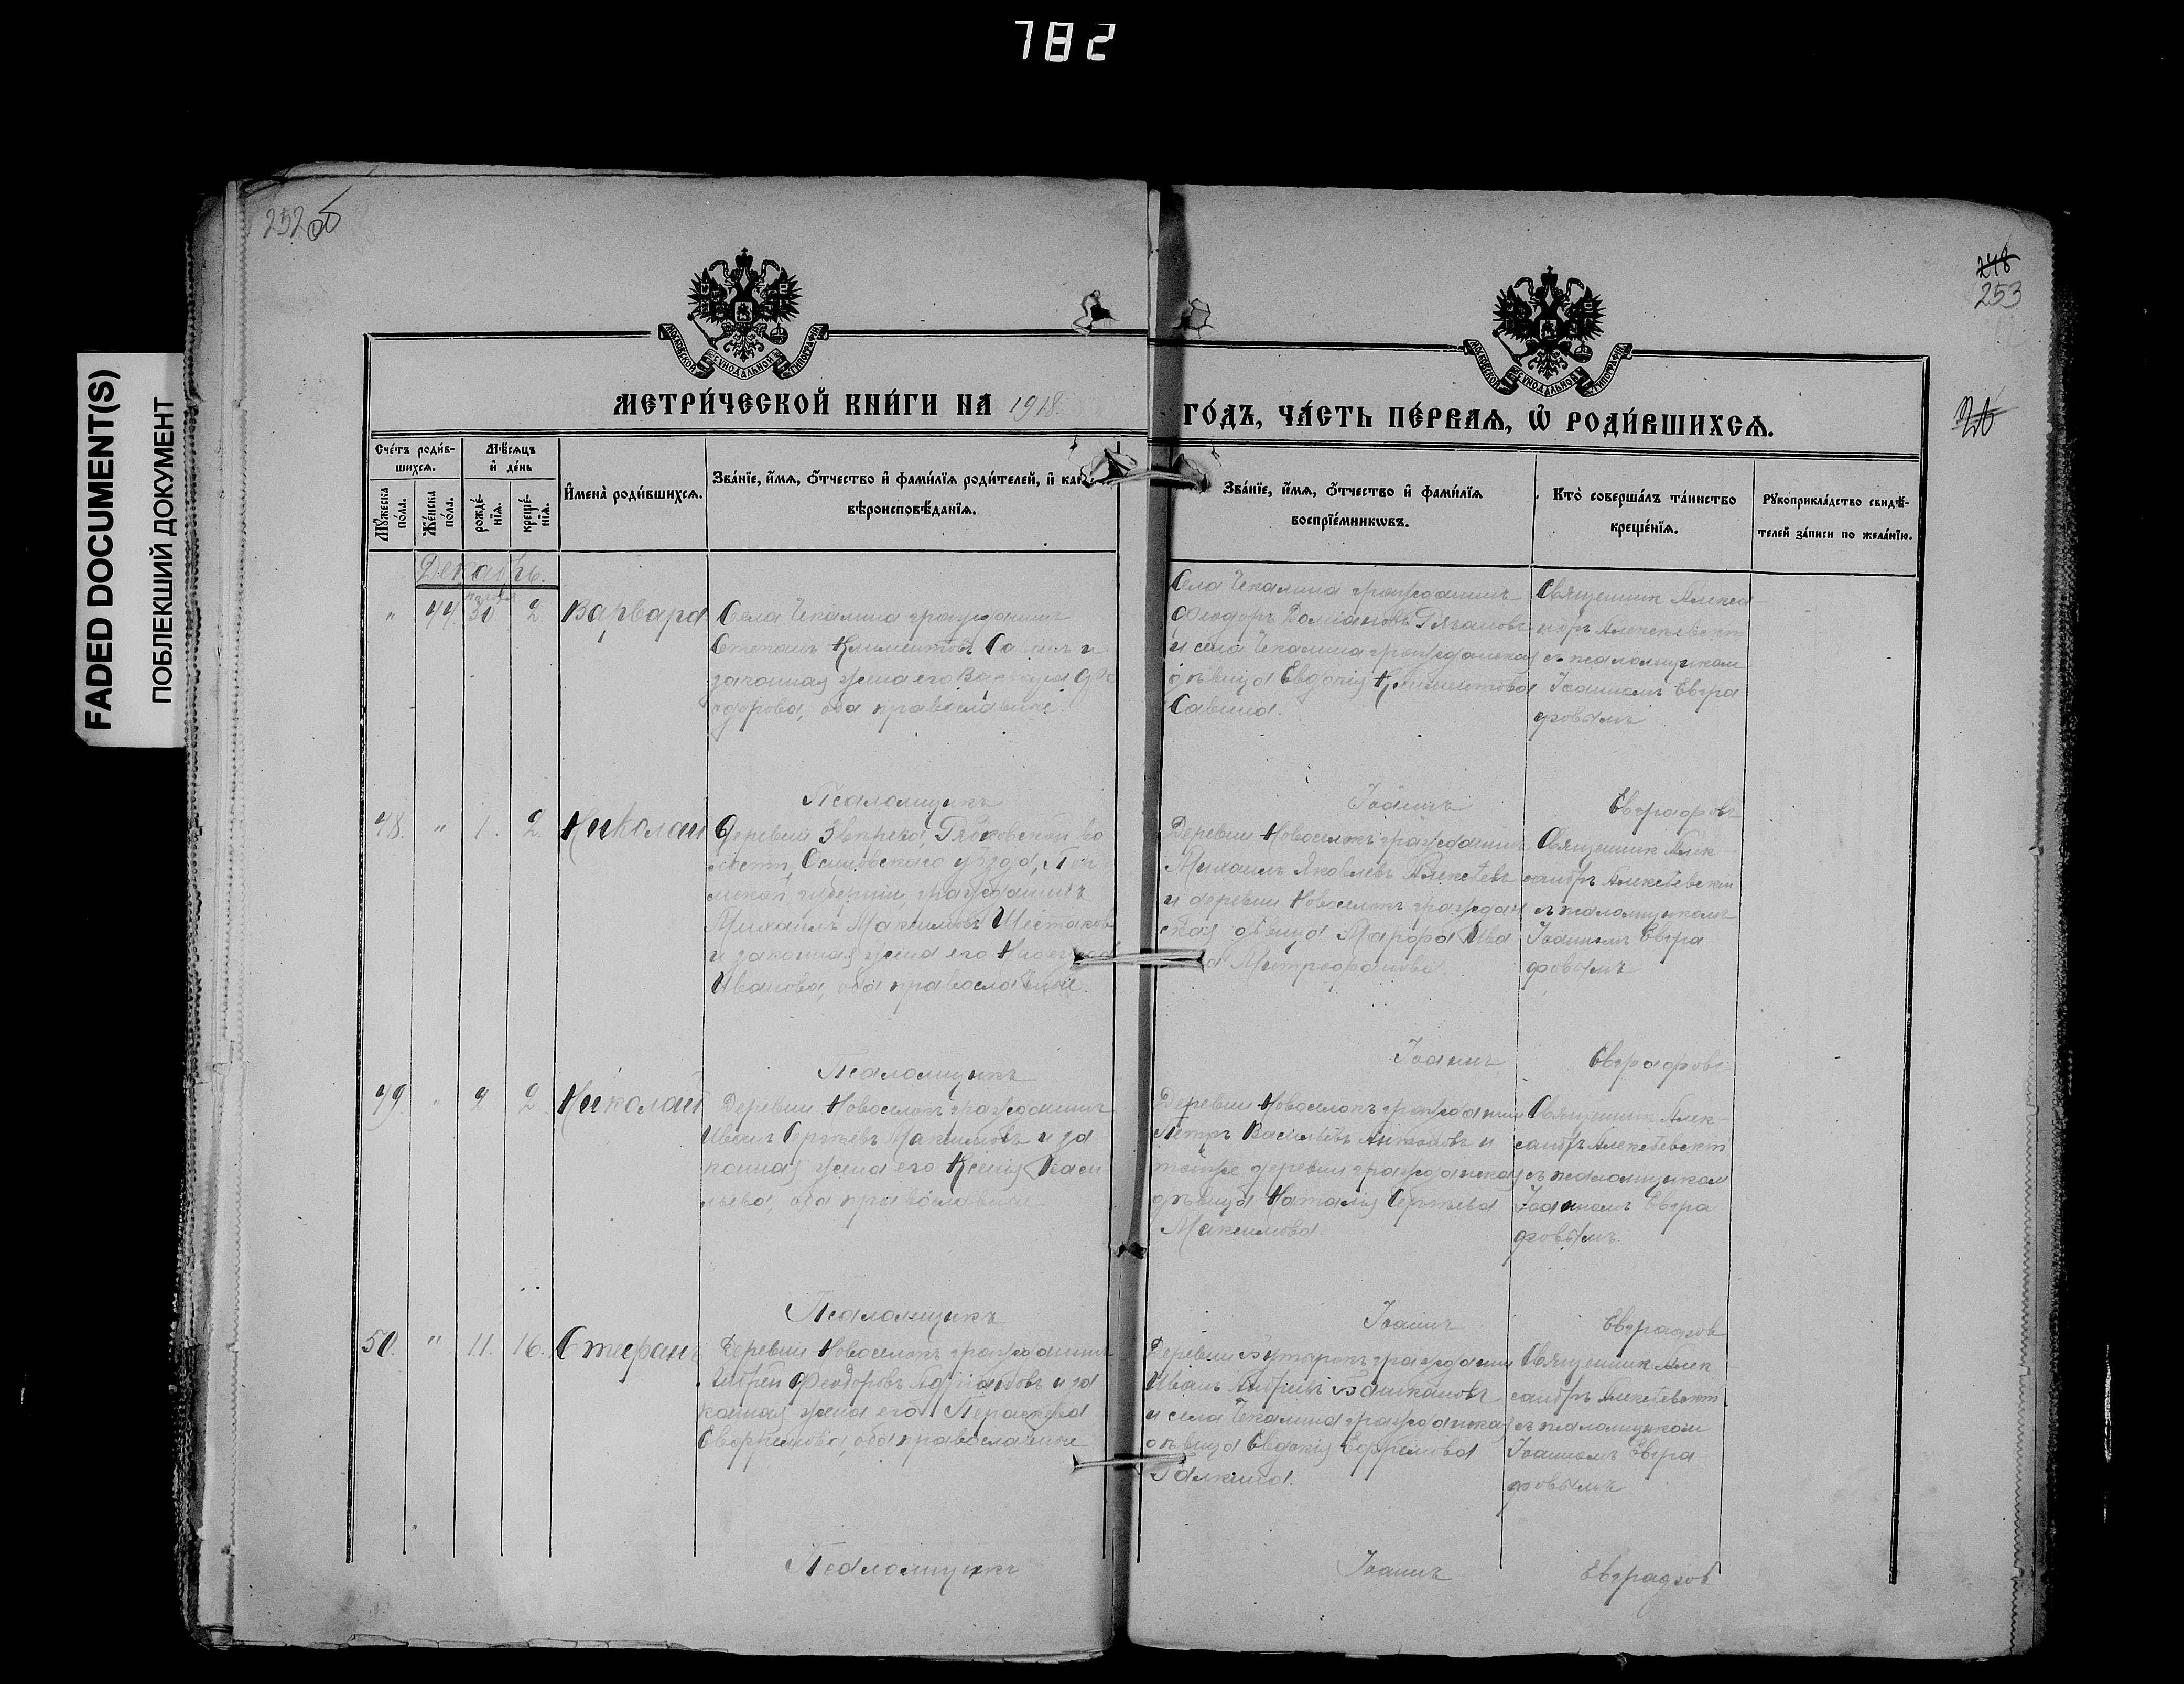 782
FADED DOCUMENT(S)
ПОБЛЕКШИЙ ДОКУМЕНТ
252 об
248
253
МОСКОВСКОЙ СУНОДАЛЬНОЙ ТИПОГРАФИИ
МОСКОВСКОЙ СУНОДАЛЬНОЙ ТИПОГРАФИИ
МЕТРИ́ЧЕСКОЙ КНИ́ГИ НА 1918
ГО́ДЪ, ЧА́СТЬ ПЕ́РВАЯ, Ѡ РОДИ́ВШИХСЯ.
Сче́тъ роди́в-
шихся.
Мѣ́сяцъ
и҆ де́нь
Му́жеска
по́ла.
Же́нска
по́ла.
рожде́-
нїя.
креще́-
нїя.
И҆мена̀ роди́вшихся.
Зва́нїе, и҆́мя, ѻ҆́тчество и҆ фами́лїя роди́телей, и҆ как
вѣроисповѣ́данїя.
Зва́нїе, и҆́мя, ѻ҆́тчество и҆ фами́лїя
воспрїе́мникωвъ.
Кто̀ соверша́лъ та́инство
креще́нїя.
Рꙋкоприкла́дство свидѣ́-
телей за́писи по жела́нїю.
Декабрь.
" 44 30 2 Варвара
Села Чекалина гражданинъ
Степанъ Климентовъ Савинъ и
законная жена его Варвара Фео
дорова, оба православные.
Села Чекалина гражданинъ
Феодоръ Рязановъ
и села Чекалина гражданская
дѣвица Евдокія Климентова
Савина.
Священникъ Алекса
ндръ Алексѣевскій
съ псаломщикомъ
Іоанномъ Евгра
фовымъ
Псаломщикъ Іоаннъ Евграфовъ
48. " 1. 2. Николай
Деревни Звѣрево, Рябковской во
лости, Осинскаго уѣзда, Пер
мской губерніи, гражданинъ
Михаилъ Максимовъ Шестаковъ
и законная жена его
Иванова, оба православные.
Деревни Новоселокъ гражданинъ
Михаилъ Яковлевъ Алексѣевъ
и деревни Новоселокъ граждан
ская дѣвица Марфа Ива
Митрофанова.
Священникъ Алек
сандръ Алексѣевскій
съ псаломщикомъ
Іоанномъ Евгра
фовымъ
Псаломщикъ Іоаннъ Евграфовъ
49. " 2 2. Николай
Деревни Новоселокъ гражданинъ
Иванъ Сергѣевъ Максимовъ и за
конная жена его Ксенія Васи
льева, оба православные
Деревни Новоселокъ гражданинъ
Петръ Васильевъ Антоновъ и
тойже деревни гражданская
дѣвица Наталія Сергѣева
Максимова.
Священникъ Алек
сандръ Алексѣевскій
съ псаломщикомъ
Іоанномъ Евгра
фовымъ.
Псаломщикъ Іоаннъ Евграфовъ
50. " 11. 16. Стефанъ
Деревни Новоселокъ гражданинъ
Андрей Феодоровъ и за
конная жена его Параскева
оба православные
Деревни гражданинъ
Иванъ Андреевъ
и села Чекалина гражданская
дѣвица Евдокія Ефремова
Галкина.
Священникъ Алек
сандръ Алексѣевскій
съ псаломщикомъ
Іоанномъ Евгра
фовымъ
Псаломщикъ Іоаннъ Евграфов